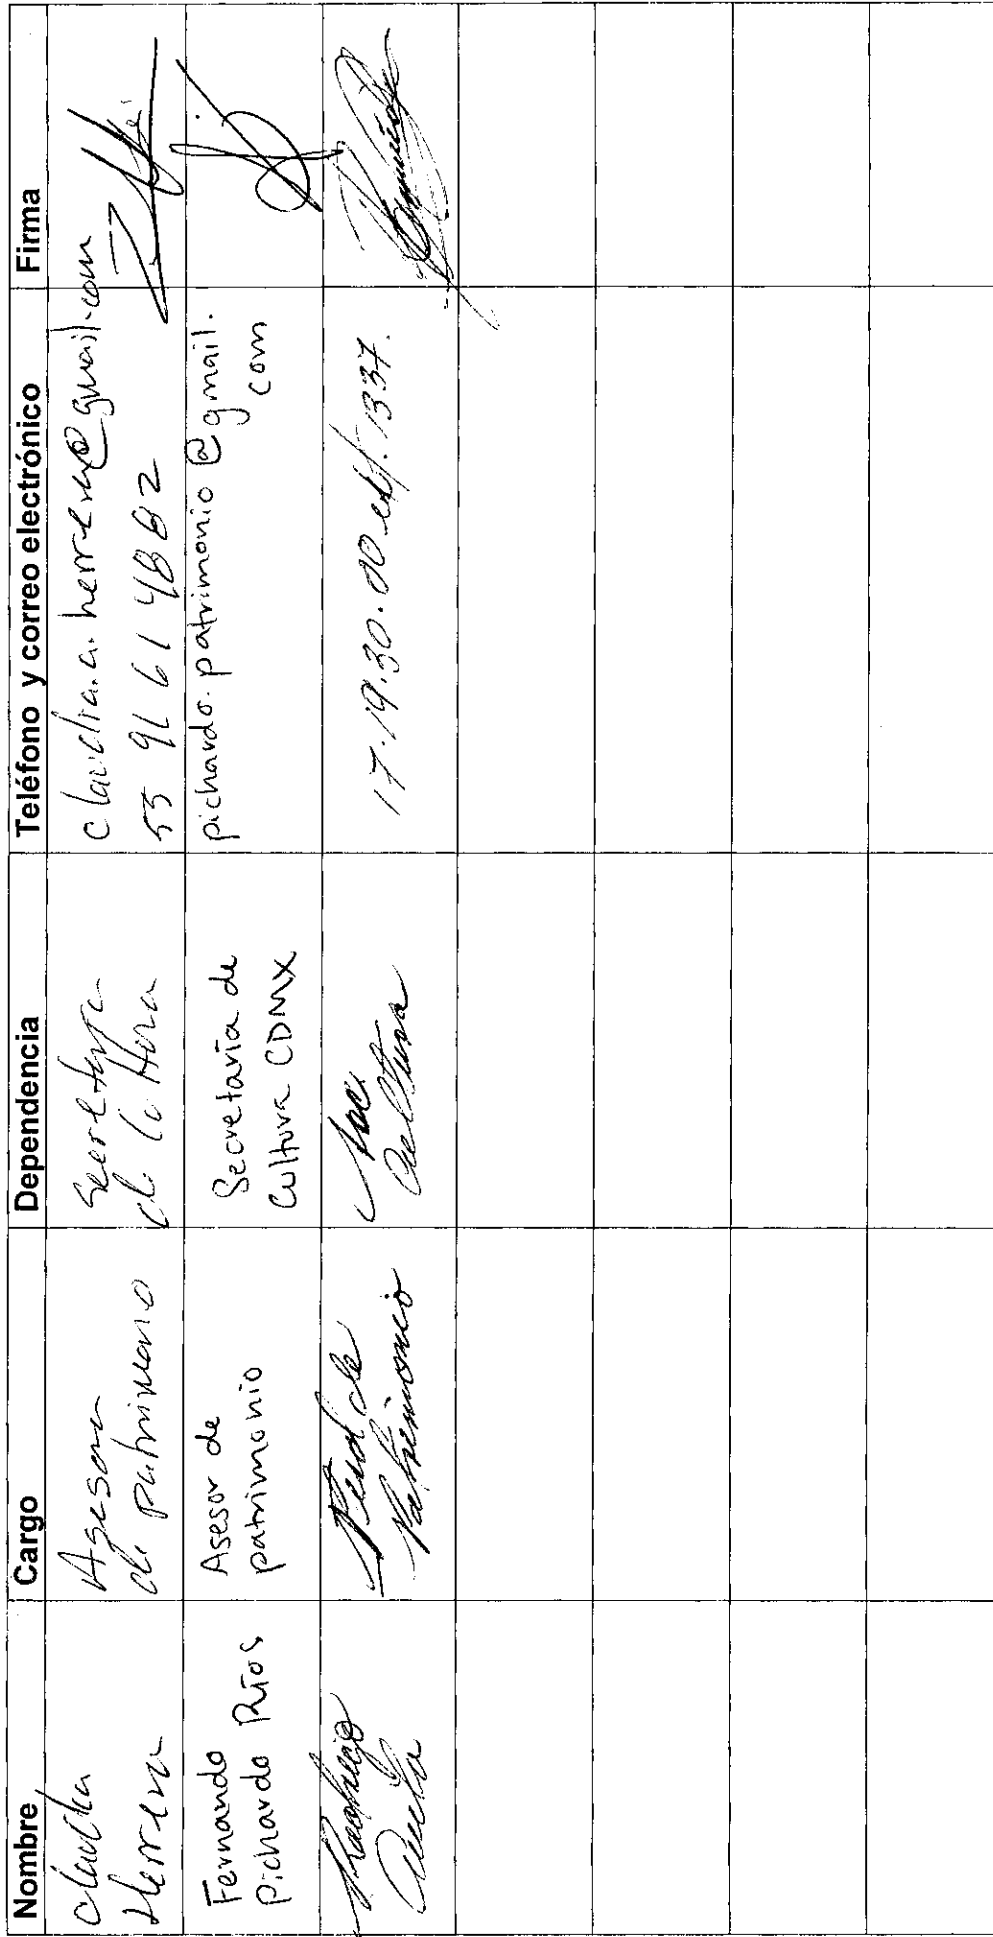 Nombre Cargo Dependencia Teléfono y correo electrónico Firma
Claudia
Herrera
Asesora
de patrimonio
Secretaría
de Cultura
claudia.a.herrera@gmail.com
55 91 61 48 82
Fernando
Pichardo Ríos
Asesor de
patrimonio
Secretaría de
Cultura CDMX
pichardo.patrimonio@gmail.
com
Rodrigo
de
Patrimonio
Sec
Cultura
17.19.30.00 ext. 1337.